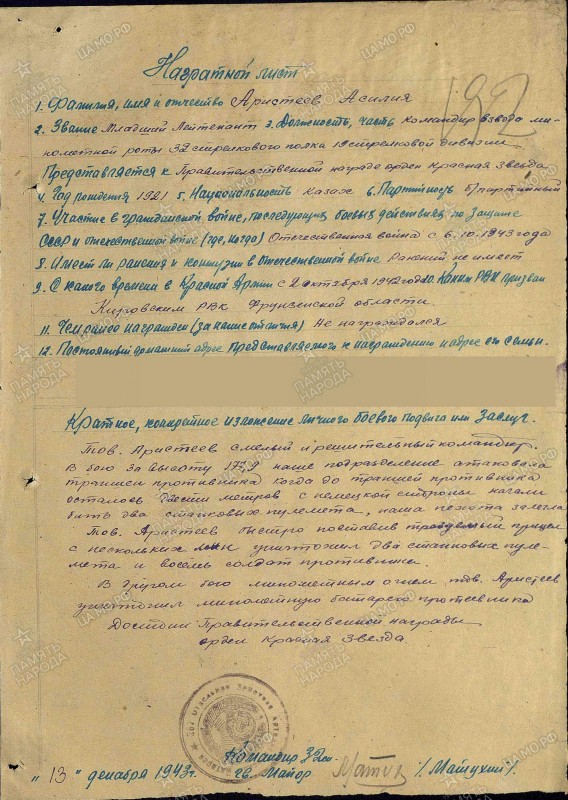 Наградной лист
1942
1. Фамилия, имя и отчество Аристеев Асилия
2. Звание Младший Лейтенант 3. Должность, часть командир взвода ми-
нометной роты 32 стрелкового полка 19 стрелковой дивизии
Представляется к Правительственной награде орден Красная Звезда
4. Год рождения 1921 5. Национальность казах 6. Партийность б/партийный
7. Участие в гражданской войне, последующих боевых действиях по защите
СССР и отечественной войне (где, когда) Отечественная война с 6.10.1943 года
8. Имеет ли ранения и контузии в отечественной войне Ранений не имеет
9. С какого времени в Красной Армии с 2 октября 1942 года 10. Каким РВК призван
Кировским РВК Фрунзенской области.
11. Чем ранее награжден (за какие отличия) Не награждался
12. Постоянный домашний адрес представляемого к награждению и адрес его семьи.
Краткое, конкретное изложение личного боевого подвига или заслуг.
Тов. Аристеев смелый и решительный командир.
В бою за высоту 177,9 наше подразделение атаковала
траншеи противника когда до траншей противника
осталось метров с немецкой стороны начали
бить два станковых пулемета, наша пехота залегла
Тов. Аристеев быстро поставив прицел
с нескольких мин уничтожил два станковых пуле-
мета и восемь солдат противника.
В другом бою минометным огнем тов. Аристеев
уничтожил минометную батарею противника
Достоин Правительственной награды
орден Красная Звезда
Командир 32 сп
"13" декабря 1943г. гв. Майор /Матухин/.
ПАМЯТЬ НАРОДА
ЦАМО.РФ